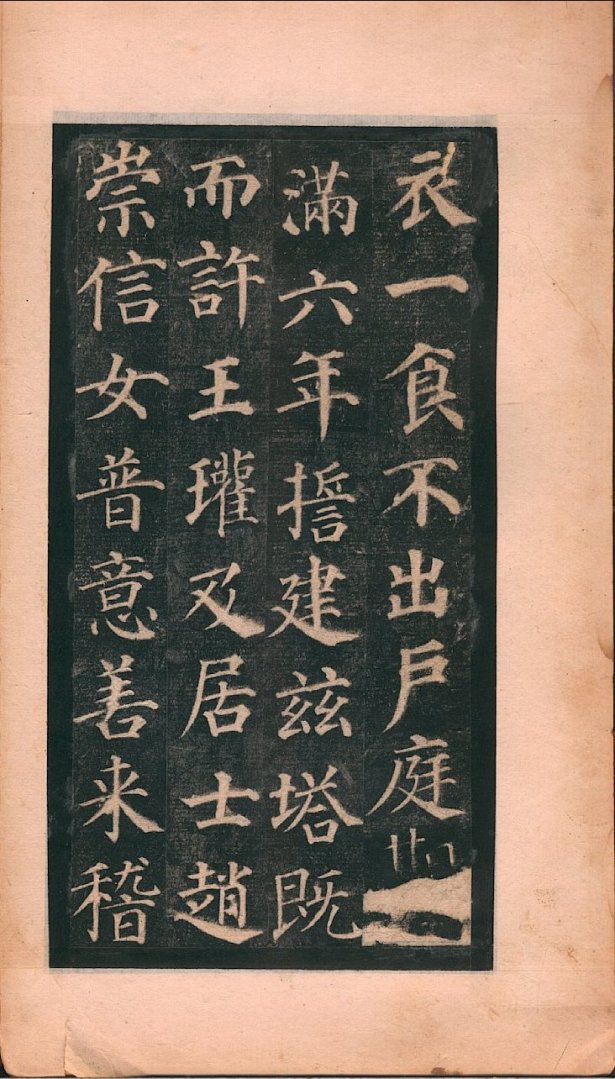 衣一食不出戶庭
滿六年誓建茲塔既
而許王瓘及居士趙
崇信女普意善来稽